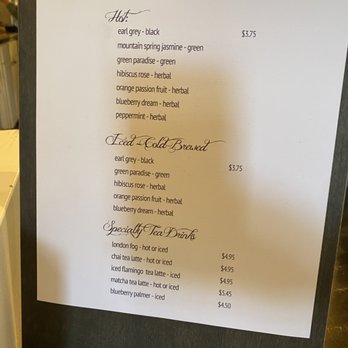 Hot:
earl grey - black $3.75
mountain spring jasmine - green
green paradise - green
hibiscus rose - herbal
orange passion fruit - herbal
blueberry dream - herbal
peppermint - herbal
Iced - Cold Brewed
earl grey - black $3.75
green paradise - green
hibiscus rose - herbal
orange passion fruit - herbal
blueberry dream - herbal
Specialty Tea Drinks
london fog - hot or iced $4.95
chai tea latte - hot or iced $4.95
iced flamingo tea latte - iced $4.95
matcha tea latte - hot or iced $5.45
blueberry palmer - iced $4.50